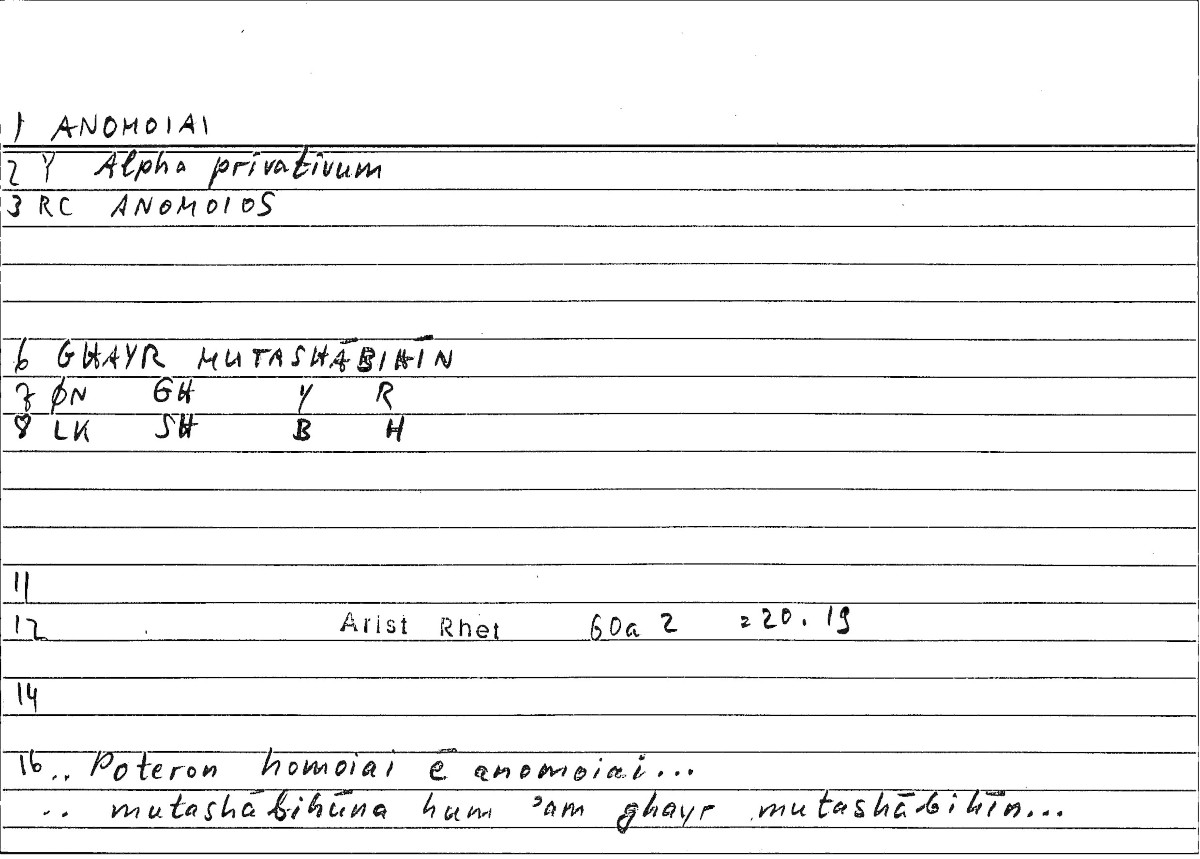 1 ANOMOIAI
2 Y Alpha privativum
3 RC ANOMOIOS
6 GHAYR MUTASHĀBIHĪN
7 ØN GH Y R
8 LK SH B H
11
12 Arist Rhet 60a 2 =20.19
14
16 .. Poteron homoiai ē anomoiai...
.. mutashābihūna hum ʾam ghayr mutashābihīn...